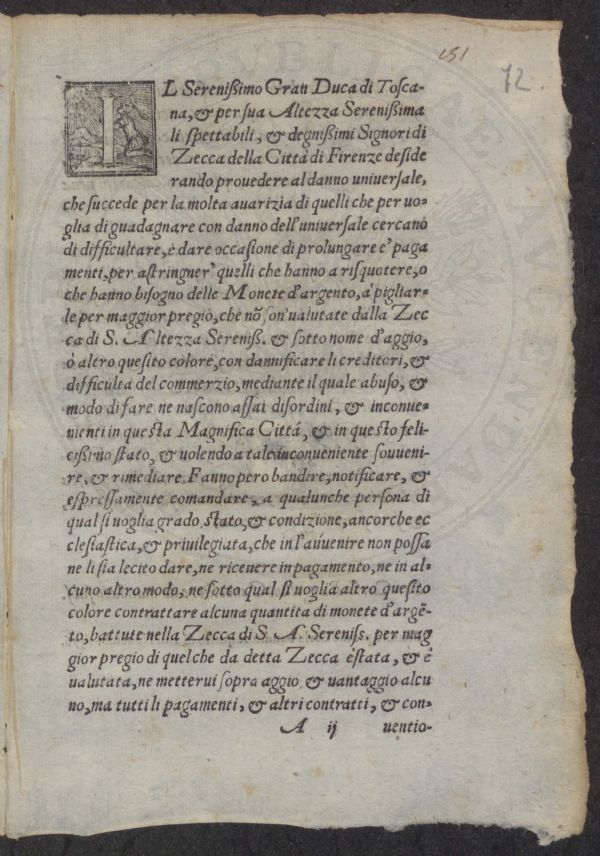 151
12.
IL Sereniſsimo Gran Duca di Toſca-
na, & per ſua Altezza Sereniſsima
li ſpettabili, & degniſsimi Signori di
Zecca della Città di Firenze deſide
rando prouedere al danno uniuerſale,
che ſuccede per la molta auarizia di quelli che per uo-
glia di guadagnare con danno dell'uniuerſale cercano
di difficultare, è dare occaſione di prolungare e' paga
menti, per aſtringner' quelli che hanno a riſquotere, o
che hanno biſogno delle Monete d'argento, a' pigliar-
le per maggior pregio, che nõ ſon' ualutate dalla Zec
ca di S. Altezza Sereniſs. & ſotto nome d'aggio,
ò altro queſito colore, con dannificare li creditori, &
difficulta del commerzio, mediante il quale abuſo, &
modo di fare ne naſcono aſſai diſordini, & inconue-
nienti in queſta Magnifica Cittá, & in queſto feli-
ciſsimo ſtato, & uolendo a tale inconueniente ſouueni-
re, & rimediare. Fanno pero bandire, notificare, &
eſpreſſamente comandare, a qualunche perſona di
qual ſi uoglia grado, ſtato, & condizione, ancorche ec
cleſiaſtica, & priuilegiata, che in l'auuenire non poſſa
ne li ſia lecito dare, ne riceuere in pagamento, ne in al-
cuno altro modo, ne ſotto qual ſi uoglia altro queſito
colore contrattare alcuna quantita di monete d'argẽ-
to, battute nella Zecca di S. A. Sereniſs. per mag
gior pregio di quel che da detta Zecca è ſtata, & è
ualutata, ne metterui ſopra aggio & uantaggio alcu
no, ma tutti li pagamenti, & altri contratti, & con-
A ij uentio-